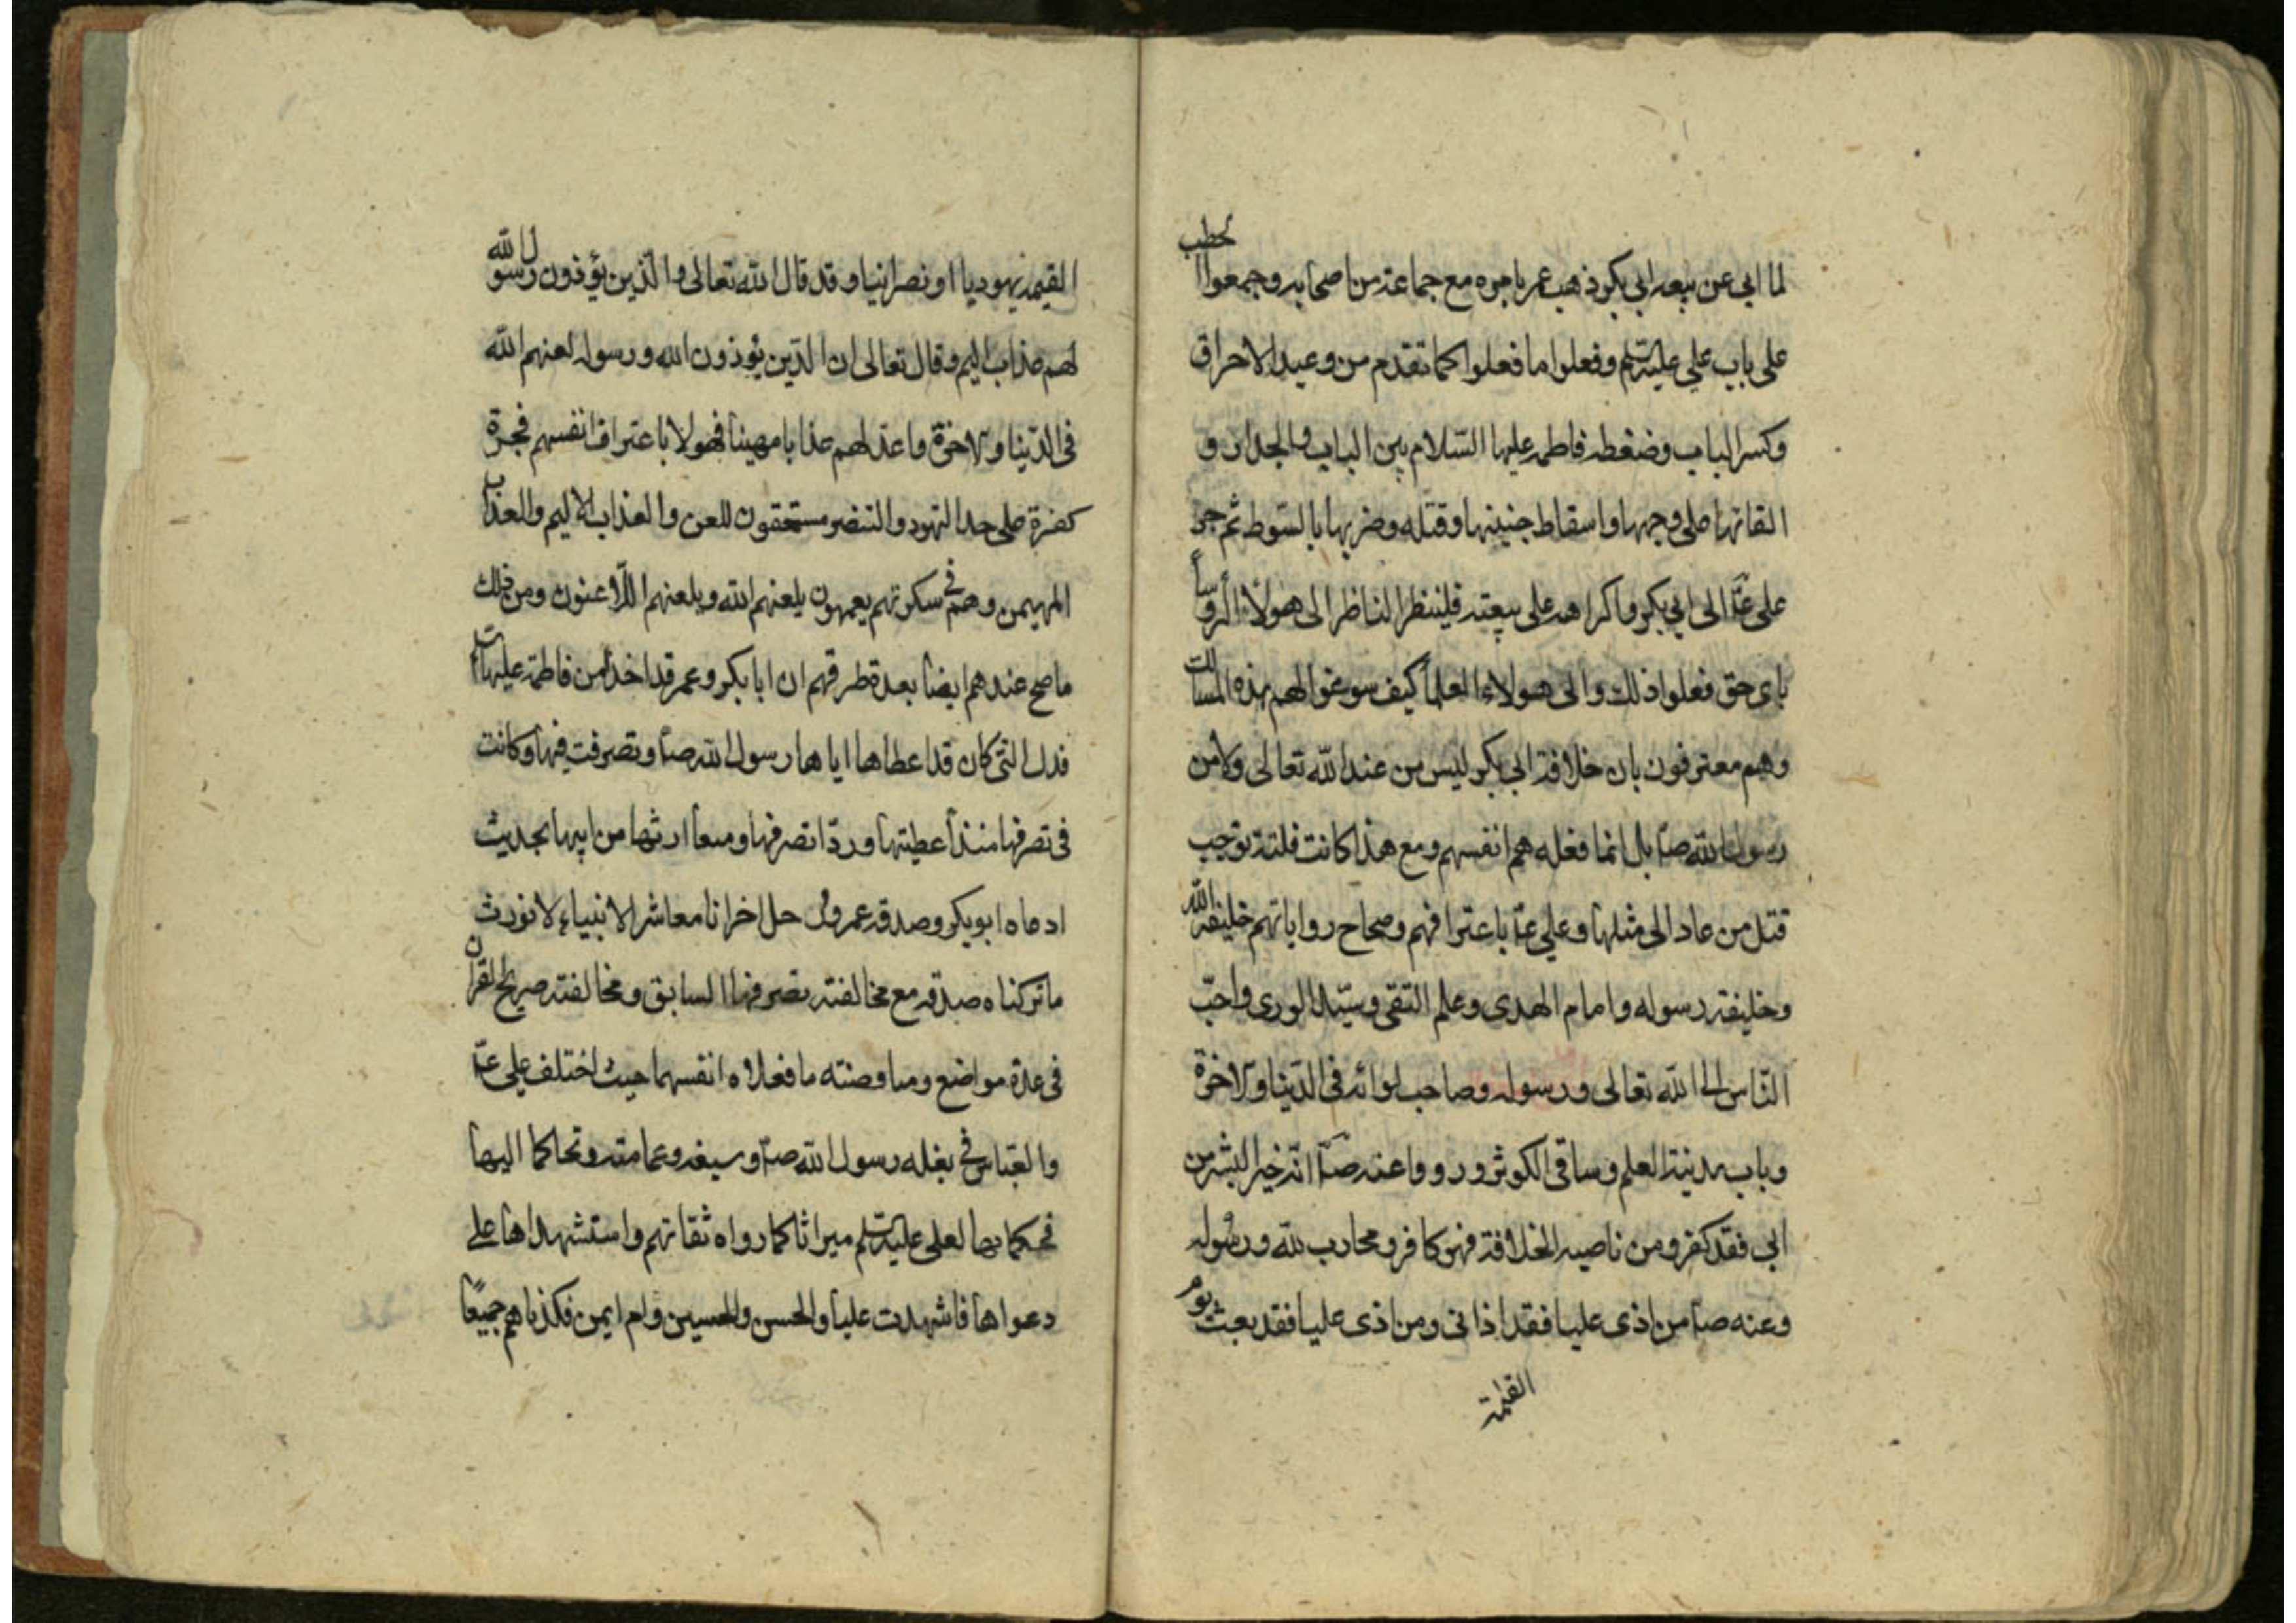 لما ابى عن بيعه ابى بكر ذهب عمر باجره مع جماعة من اصحابه وجمعوا الحطب
على باب علي عليه السلم وفعلوا ما فعلوا كما تقدم من وعيد الاحراق
وكسر الباب وضغطه فاطمه عليها السلام بين الباب والجدار و
القائها على وجهها واسقاط جنينها وقتله وضربها بالسوط ثم جر
على عم الى ابى بكر واكراهه على بيعته فلينظر الناظر الى هولاء الروسا
باى حق فعلوا ذلك والى هولاء العلما كيف سوغوا لهم بهذه المسالك
وهم معترفون بان خلافة ابى بكر ليس من عند الله تعالى ولا من
رسول الله صم بل انما فعله هم انفسهم ومع هذا كانت فلتة توجب
قتل من عاد الى مثلها وعلي عم باعترافهم وصحاح رواياتهم خليفة الله
وخليفة رسوله وامام الهدى وعلم التقى وسيد الورى واحب
الناس الى الله تعالى ورسوله وصاحب لوائه فى الدنيا والآخرة
وباب مدينة العلم وساقى الكوثر ورووا عنه صم انه خير البشر من
ابى فقد كفر ومن ناصبه الخلافة فهو كافر ومحارب لله ورسوله
وعنه صم من اذى عليا فقد اذانى ومن اذى عليا فقد بعث يوم
القيمة
القيمه يهوديا او نصرانيا وقد قال الله تعالى والذين يؤذون رسول الله
لهم عذاب اليم وقال تعالى ان الذين يؤذون الله ورسوله لعنهم الله
فى الدنيا والآخرة واعد لهم عذابا مهينا فهولا باعتراف انفسهم فجرة
كفرة على حد اليهود والتنصر مستحقون للعن والعذاب الاليم والعذاب
المهيمن وهم فى سكرتهم يعمهون يلعنهم الله ويلعنهم اللاعنون ومن ذلك
ما صح عندهم ايضا بعدة طرقهم ان ابابكر وعمر قد اخذا من فاطمة عليها
فدك التى كان قد اعطاها اياها رسول الله صم وتصرفت فيها وكانت
فى تصرفها منذ اعطيتها وردا تصرفها ومنعا ارثها من ابيها بحديث
ادعاه ابوبكر وصدقه عمر ورجل اخر انا معاشر الانبياء لا نورث
ما تركناه صدقه مع مخالفته تصرفها السابق ومخالفته صريح القران
فى عدة مواضع ومناقضته ما فعلاه انفسهما حيث اختلف على عم
والعباس فى بغله رسول الله صم وسيفه وعمامته وتحاكما اليهما
فحكما بها لعلى عليه السلم ميراثا كما رواه ثقاتهم واستشهداها على
دعواها فاشهدت عليا والحسن والحسين وام ايمن فكذباهم جميعا